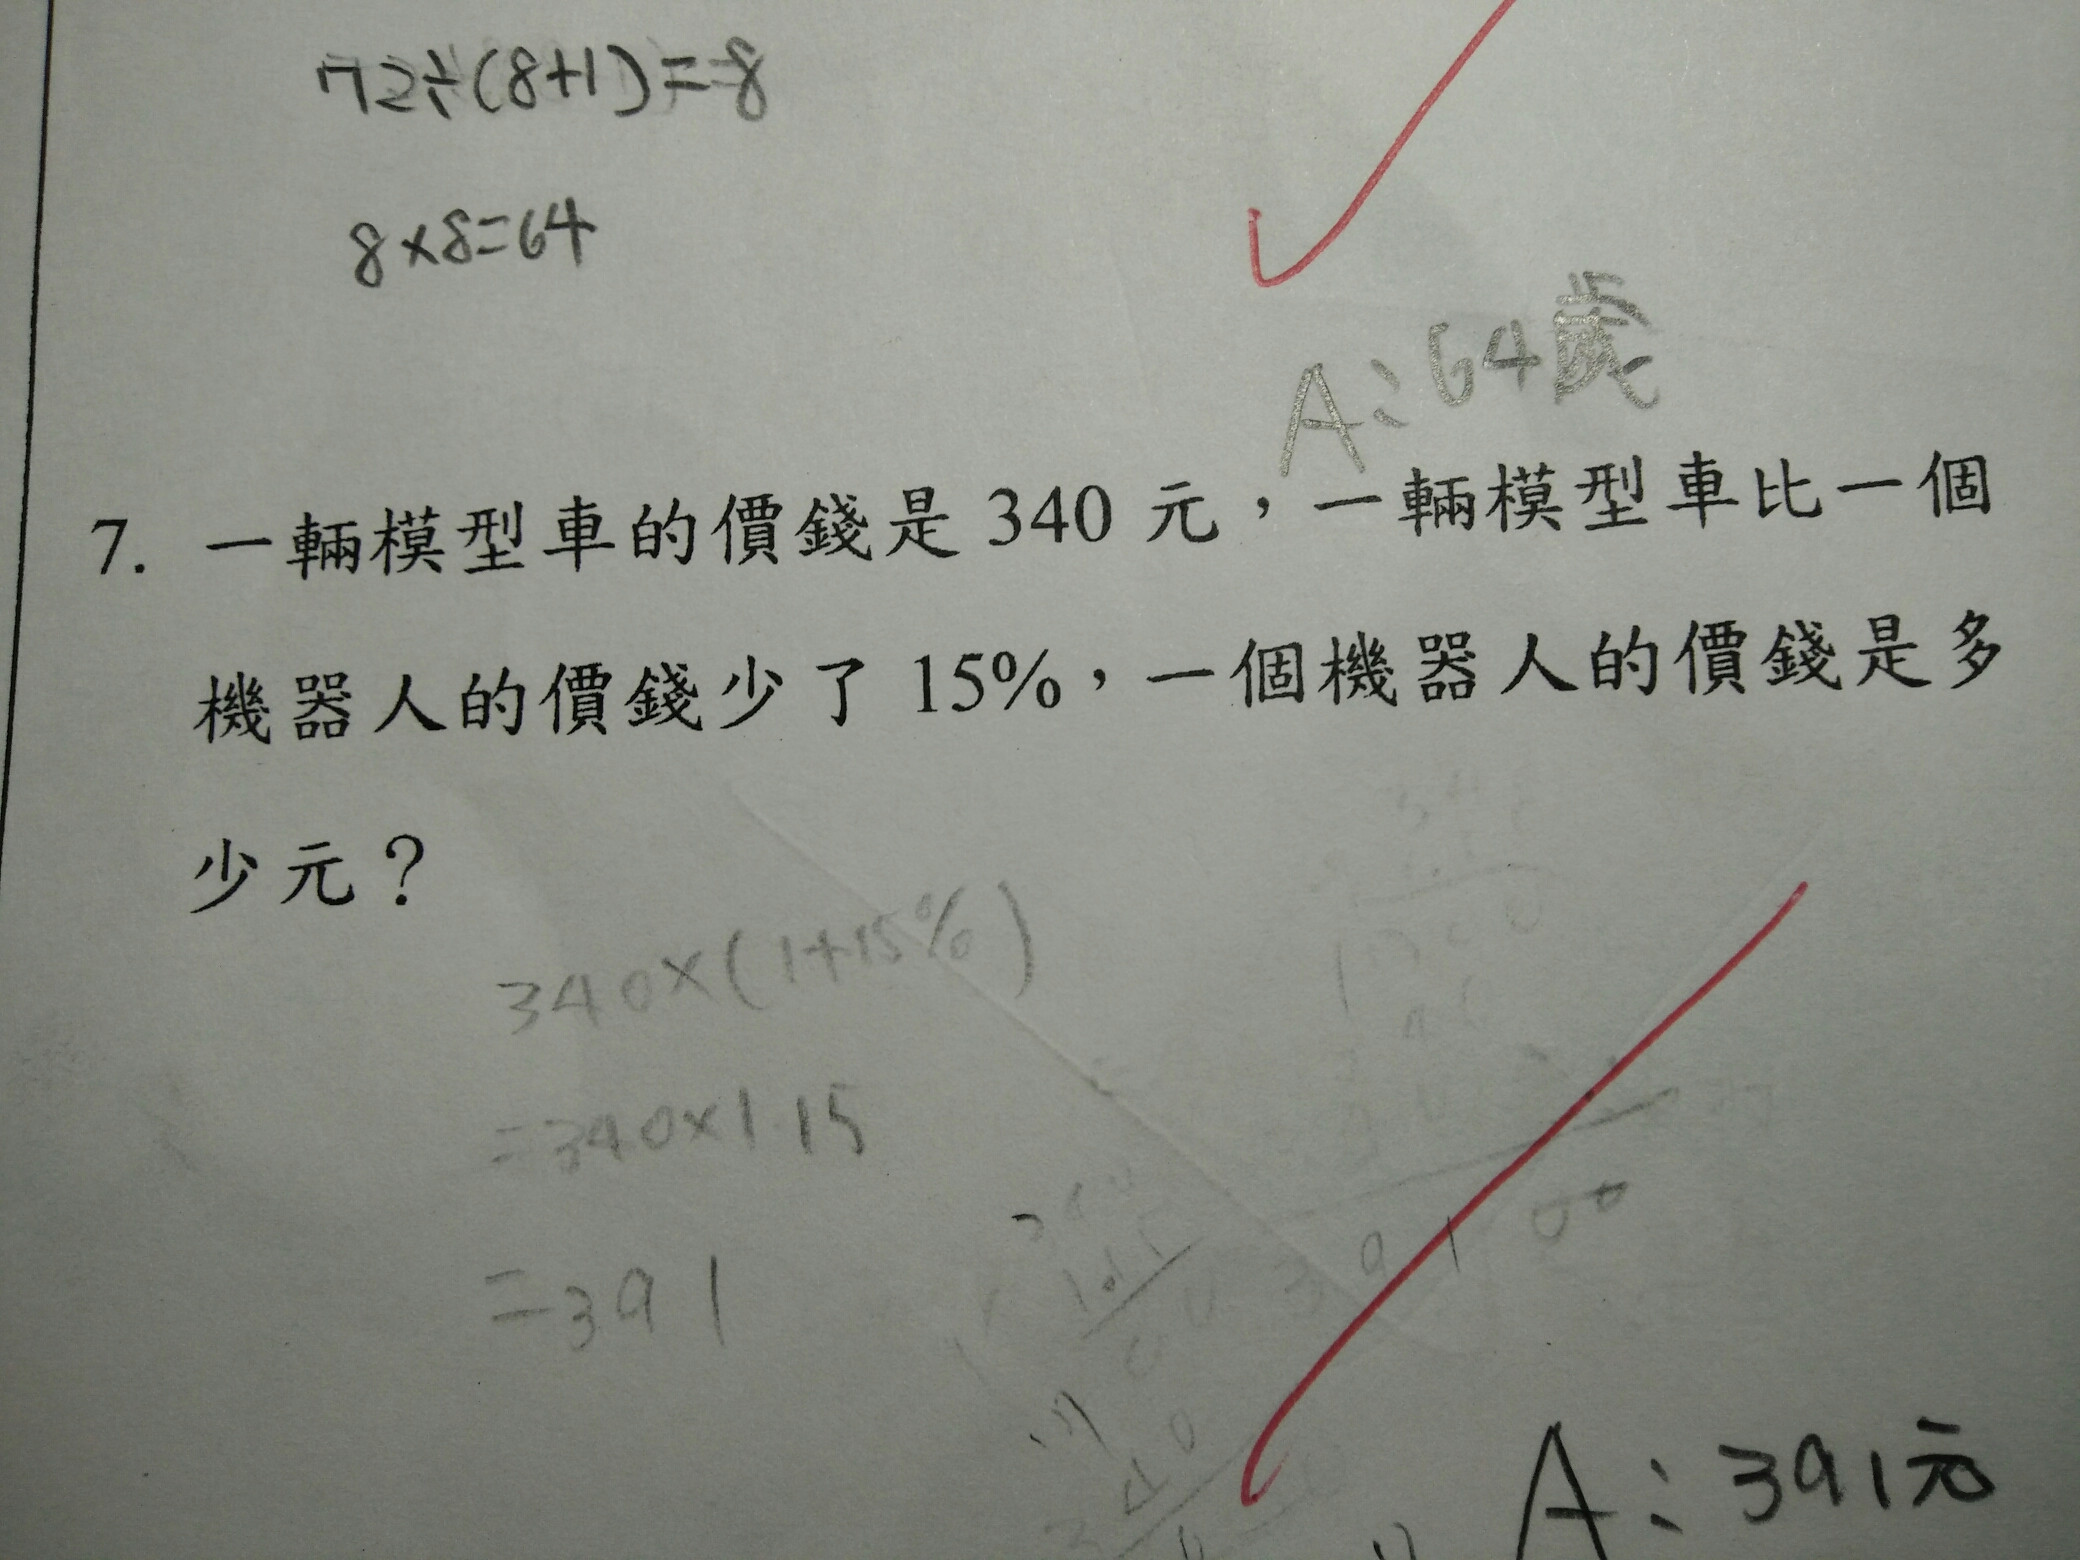 72÷(8+1)=8
8×8=64
A:64歲
7. 一輛模型車的價錢是 340 元，一輛模型車比一個
機器人的價錢少了 15%，一個機器人的價錢是多
少元？
340×(1+15%)
=340×1.15
=391
39100
A:391元